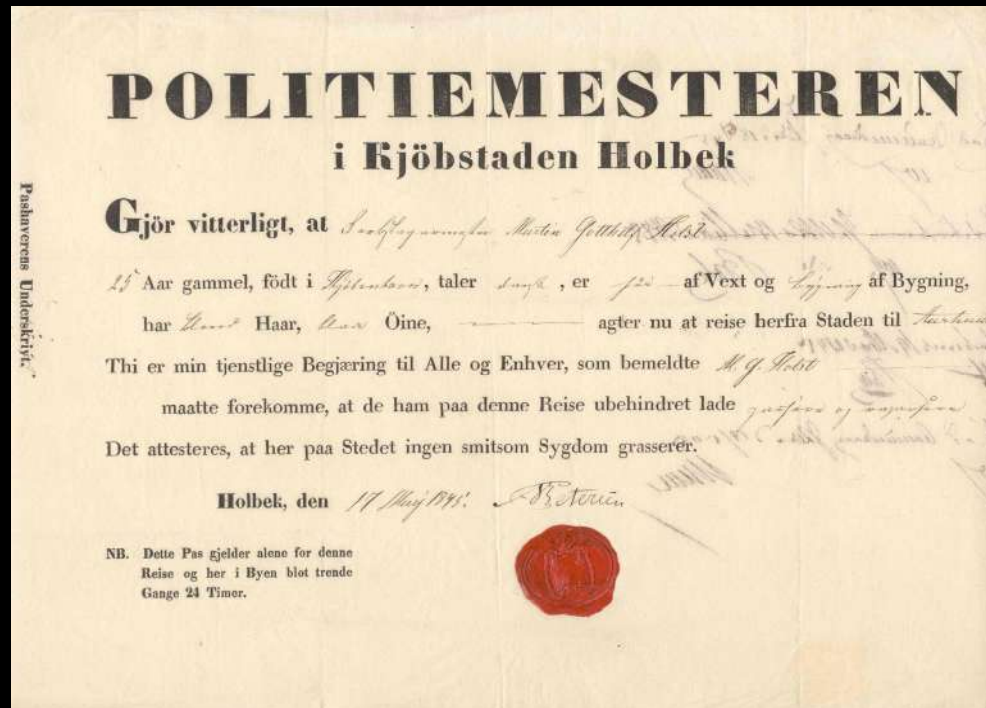 POLITIEMESTEREN
i Kjöbstaden Holbek
Gjör vitterligt, at Martin Gotthilf Holst
25 Aar gammel, födt i Kjöbenhavn, taler dansk, er af Vext og af Bygning,
har Haar, blaa Öine, agter nu at reise herfra Staden til
Thi er min tjenstlige Begjæring til Alle og Enhver, som bemeldte M. G. Holst
maatte forekomme, at de ham paa denne Reise ubehindret lade passere og repassere
Det attesteres, at her paa Stedet ingen smitsom Sygdom grasserer.
Holbek, den 17 Maij 1845.
NB. Dette Pas gjelder alene for denne
Reise og her i Byen blot trende
Gange 24 Timer.
Pashaverens Underskrivt.